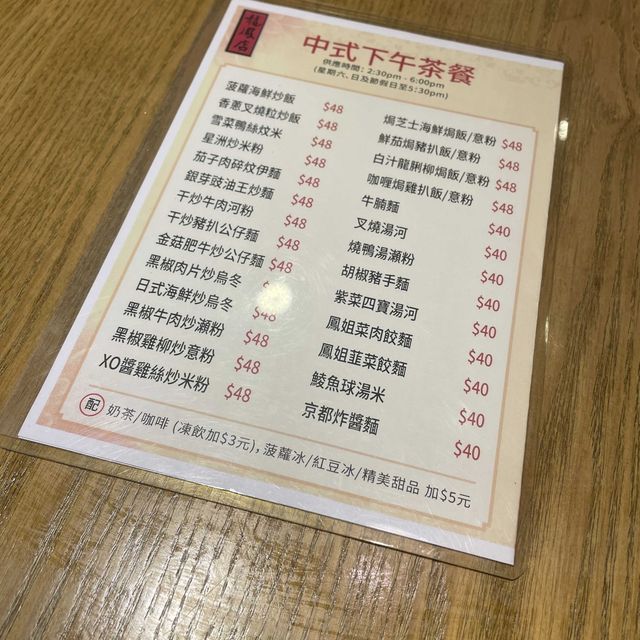 龍鳳店
中式下午茶餐
供應時間：2:30pm - 6:00pm
(星期六、日及節假日至5:30pm)
菠蘿海鮮炒飯 $48
香蔥叉燒粒炒飯 $48
雪菜鴨絲炆米 $48
星洲炒米粉 $48
茄子肉碎炆伊麵 $48
銀芽豉油王炒麵 $48
干炒牛肉河粉 $48
干炒豬扒公仔麵 $48
金菇肥牛炒公仔麵 $48
黑椒肉片炒烏冬
日式海鮮炒烏冬 $48
黑椒牛肉炒瀨粉 $48
黑椒雞柳炒意粉 $48
XO醬雞絲炒米粉 $48
焗芝士海鮮焗飯/意粉 $48
鮮茄焗豬扒飯/意粉 $48
白汁龍脷柳焗飯/意粉 $48
咖喱焗雞扒飯/意粉 $48
牛腩麵 $40
叉燒湯河 $40
燒鴨湯瀨粉 $40
胡椒豬手麵 $40
紫菜四寶湯河 $40
鳳姐菜肉餃麵 $40
鳳姐韮菜餃麵 $40
鯪魚球湯米 $40
京都炸醬麵 $40
配 奶茶/咖啡 (凍飲加$3元), 菠蘿冰/紅豆冰/精美甜品 加$5元